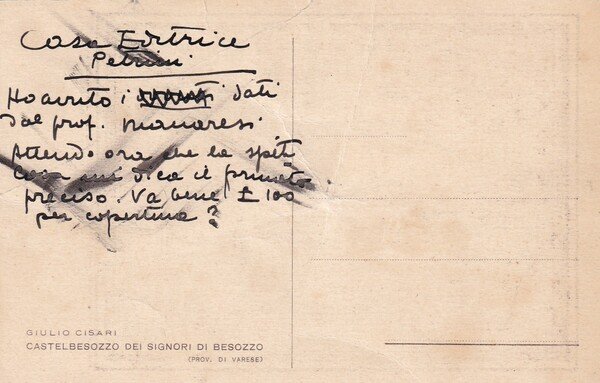 Casa Editrice
Petrini
Ho avuto i dati
dal prof. Manaresi
Attendo ora che la spett.
casa mi dica il formato
preciso. Va bene £ 100
per copertina?
GIULIO CISARI
CASTELBESOZZO DEI SIGNORI DI BESOZZO
(PROV. DI VARESE)